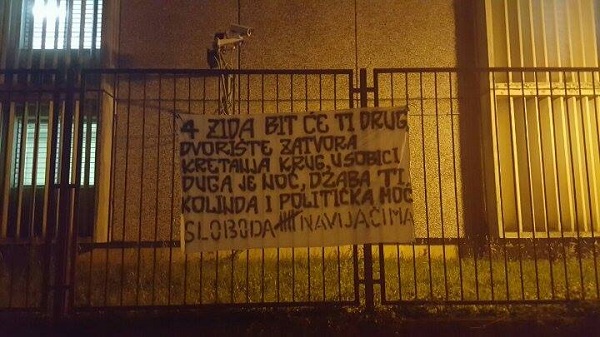 4 ZIDA BIT ĆE TI DRUG
DVORIŠTE ZATVORA
KRETANJA KRUG, U SOBICI
DUGA JE NOĆ, DŽABA TI
KOLINDA I POLITIČKA MOĆ
SLOBODA NAVIJAČIMA